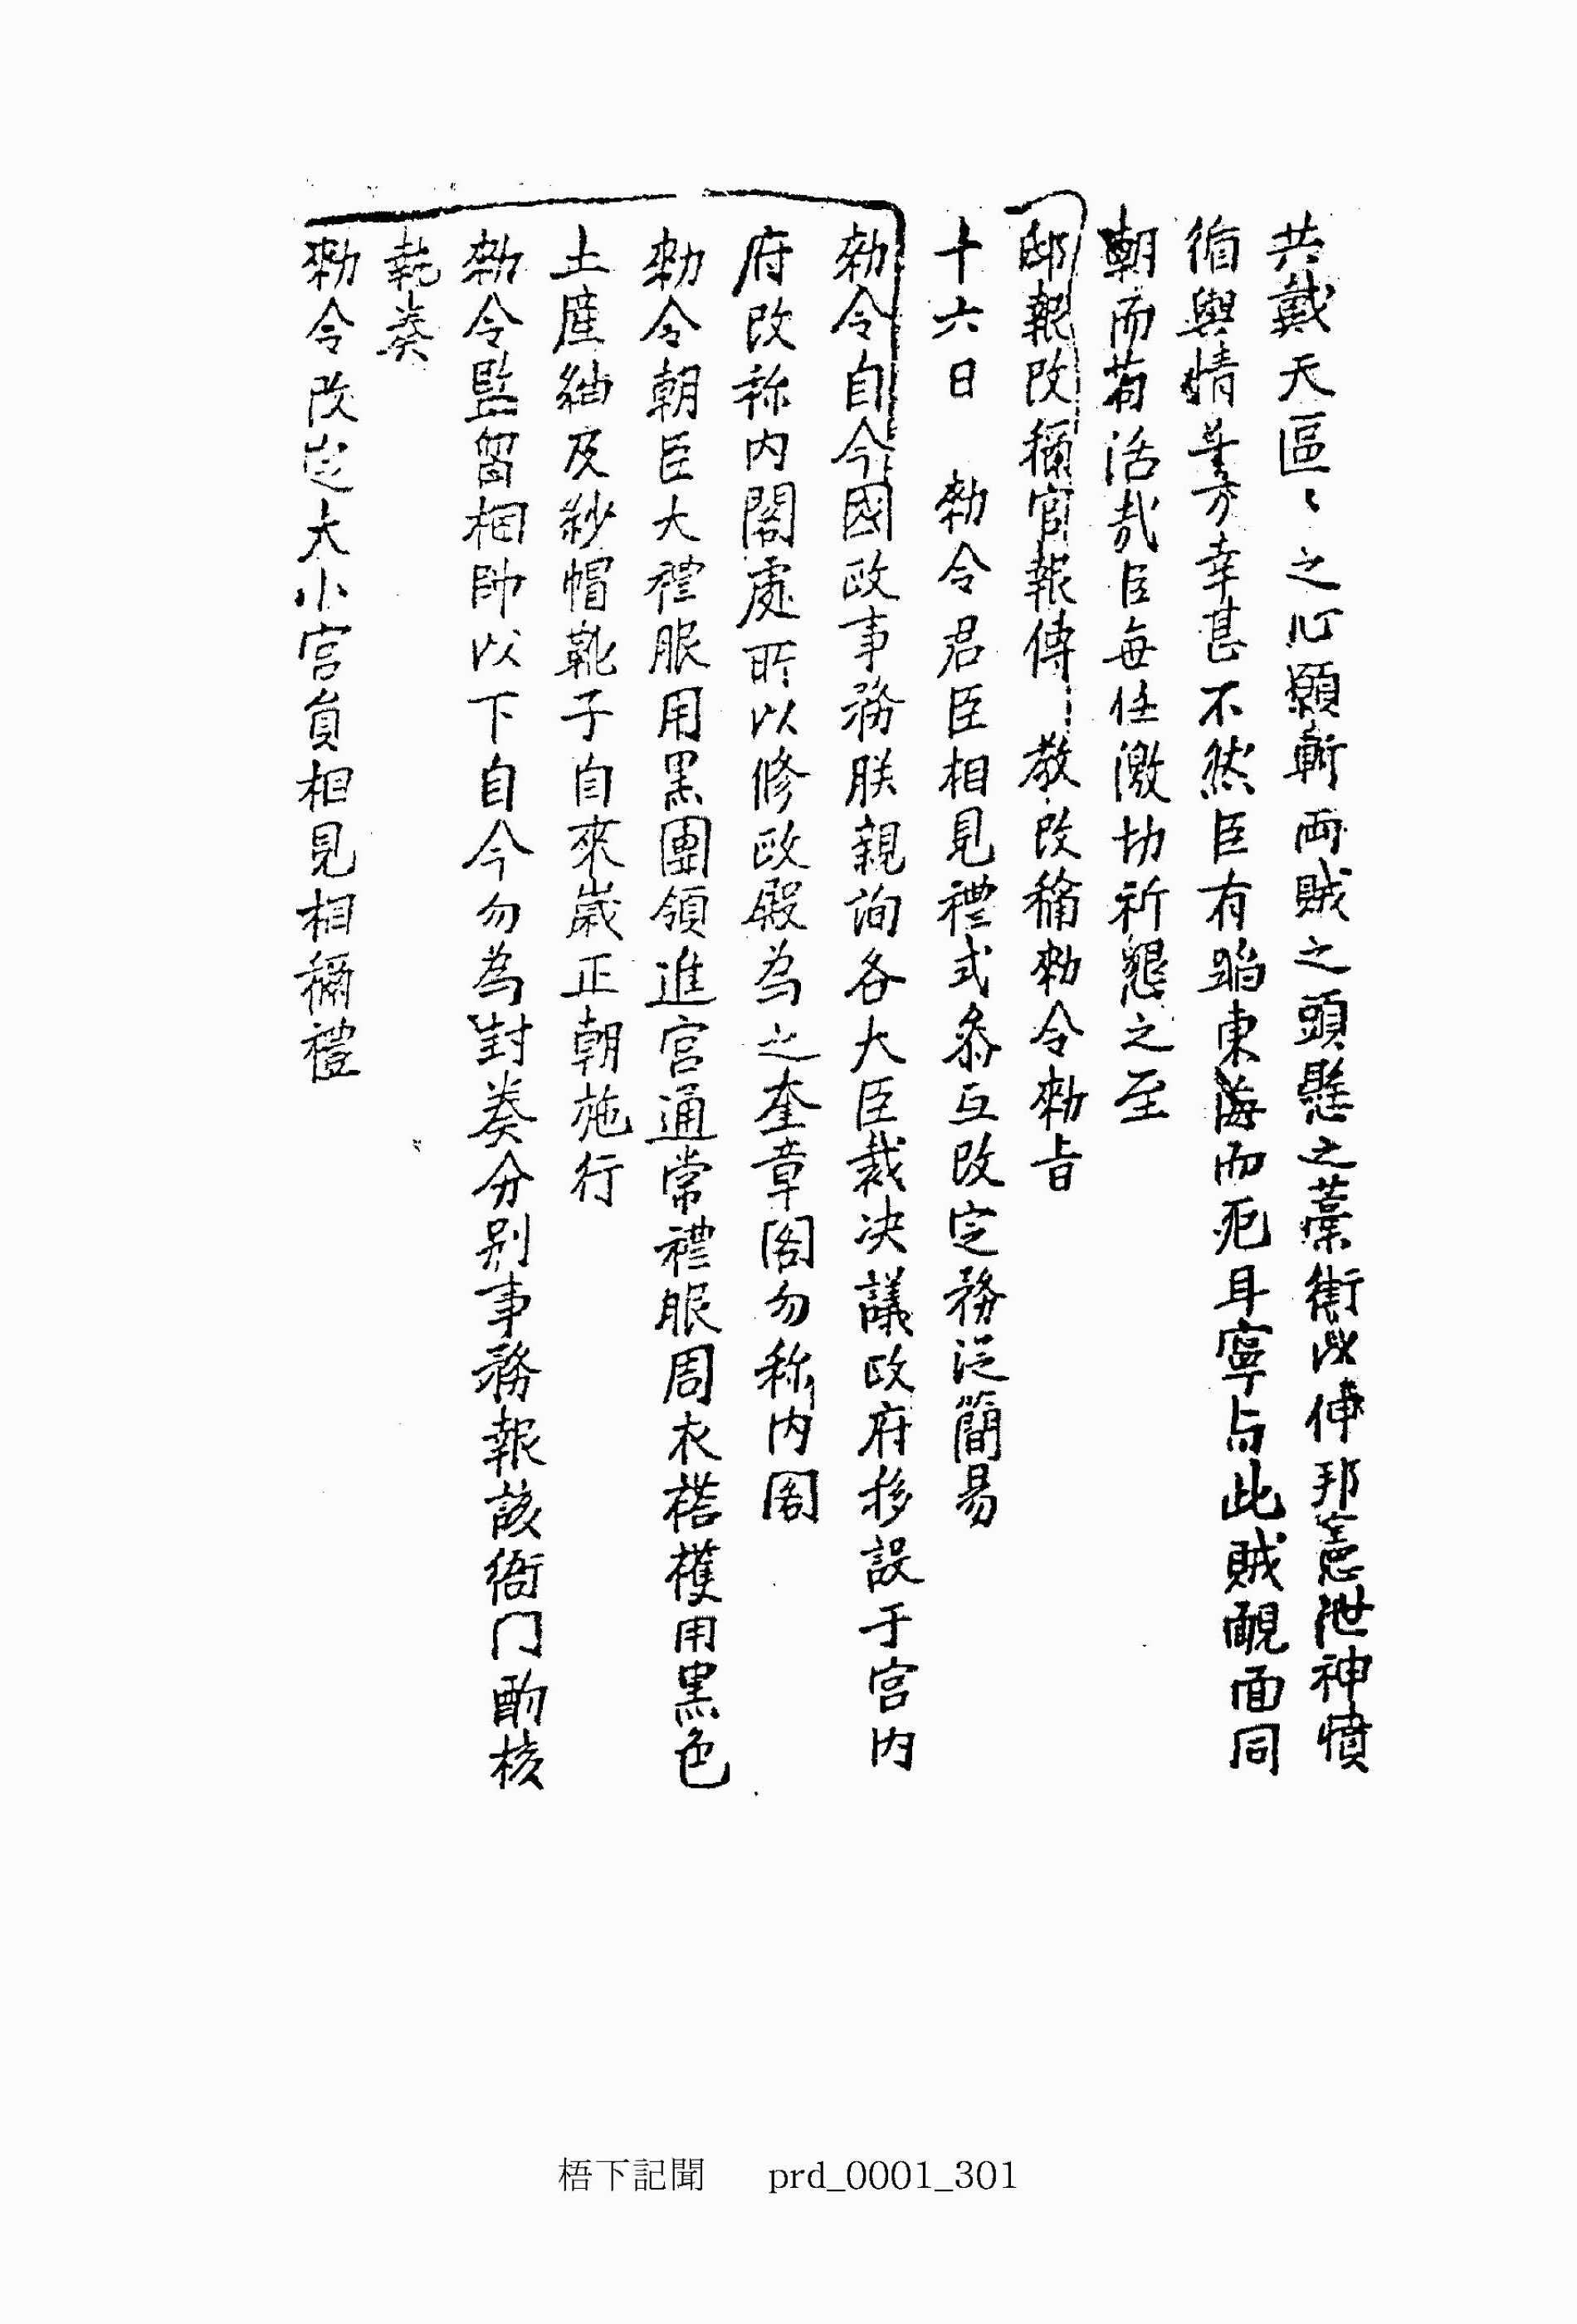 共戴天區〻之心願斬両賊之頭懸之藁街以伸邦憲泄神憤
循輿情萬幸甚不然臣有蹈東海而死耳寧与此賊靦面同
朝而苟活哉臣每任激切祈懇之至
邸報改稱官報傳教改稱勅令勅旨
十六日 勅令君臣相見禮式叅互改定務從簡易
勅令自今國政事務朕親詢各大臣裁决議政府移設于宮内
府改称内閣處所以修政殿為之奎章閣勿称内閣
勅令朝臣大禮服用黑團領進宮通常禮服周衣褡𧞤用黑色
土產紬及紗帽靴子自來歲正朝施行
勅令監留梱帥以下自今勿為封奏分別事務報該衙門酌核
執奏
勅令改定大小官員相見相稱禮
梧下記聞 prd_0001_301